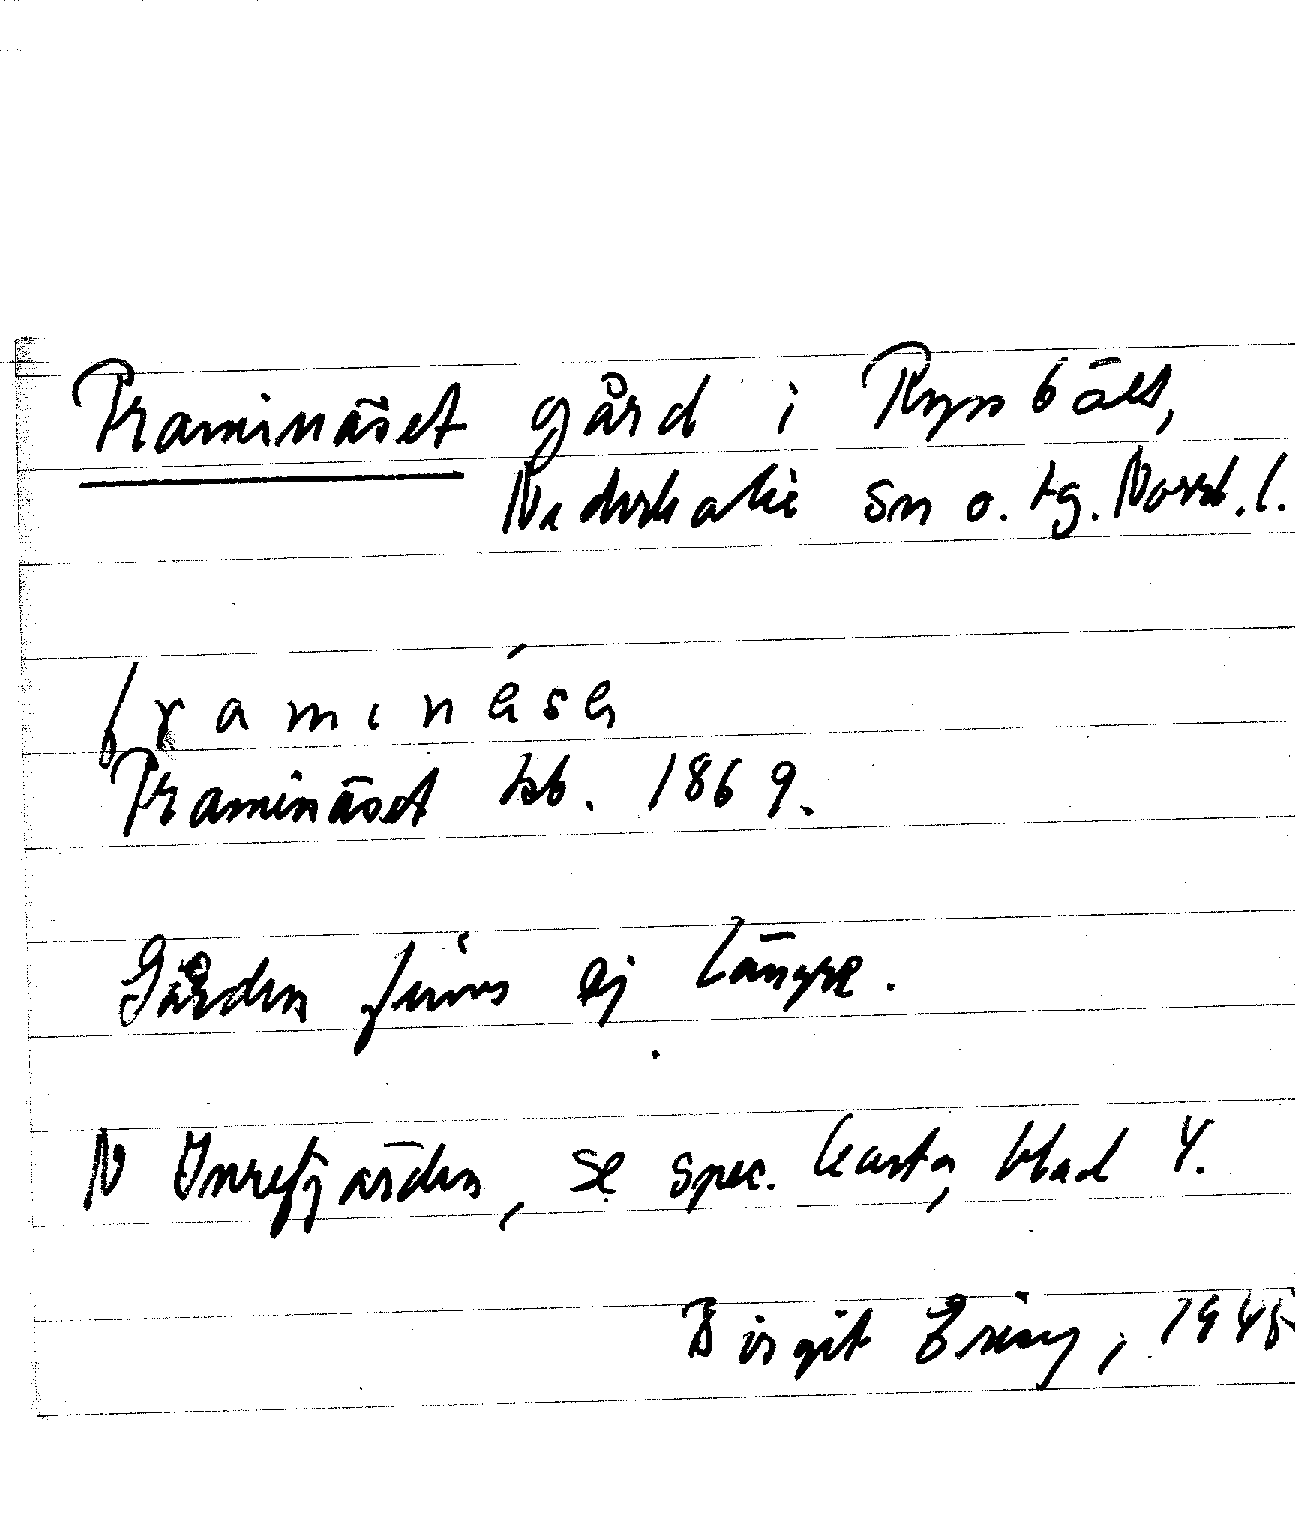 Framinäset gård i Rynbält,
Nederkalix sn o. tg. Norrb. l.
framinäsa
Framinäset kb. 1869.
Gården finns ej längre.
N Inrefjärden, se spec. karta, blad 4.
Birgit Ering, 1945